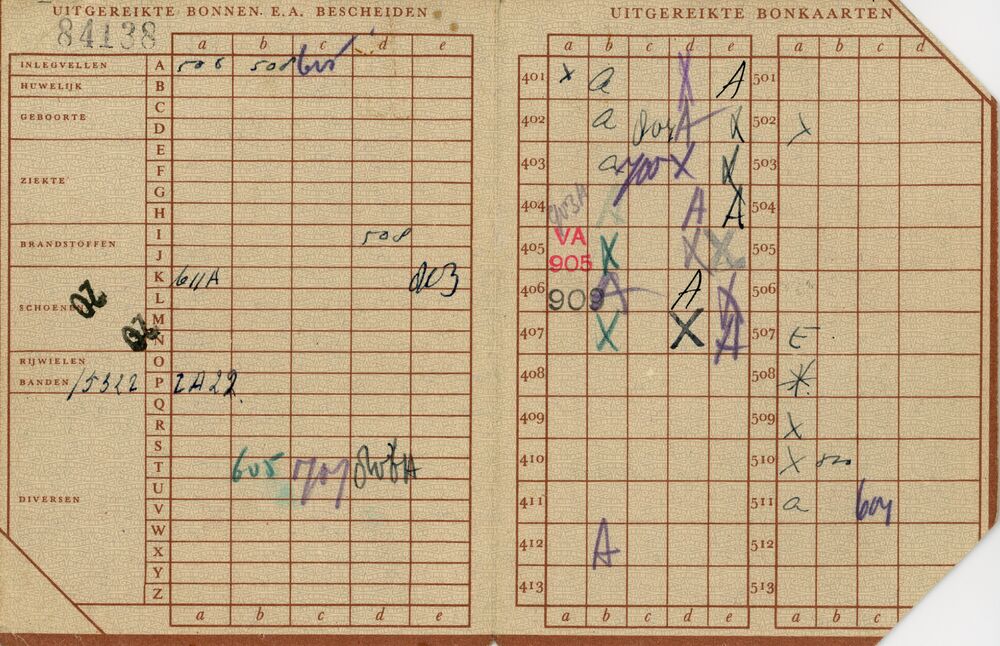 UITGEREIKTE BONNEN E.A. BESCHEIDEN
84138
a b c d e
INLEGVELLEN A 508 508
HUWELIJK B
C
GEBOORTE D
E
F
ZIEKTE G
H
I 508
BRANDSTOFFEN J
K 611A 803
L
SCHOENEN M
N
RIJWIELEN O
BANDEN 15322 P 2A22.
Q
R
S
T 605 707
U
DIVERSEN V
W
X
Y
Z
a b c d e
UITGEREIKTE BONKAARTEN
a b c d e a b c d
401 x a X A 501
402 a A X 502 x
403 a 700 X X 503
404 903A X A A 504
VA
405 X X X 505
905
406 909 A A X 506
407 X X A 507 E
408 508
409 509 X
410 510 X
411 511 a 604
412 A 512
413 513
a b c d e a b c